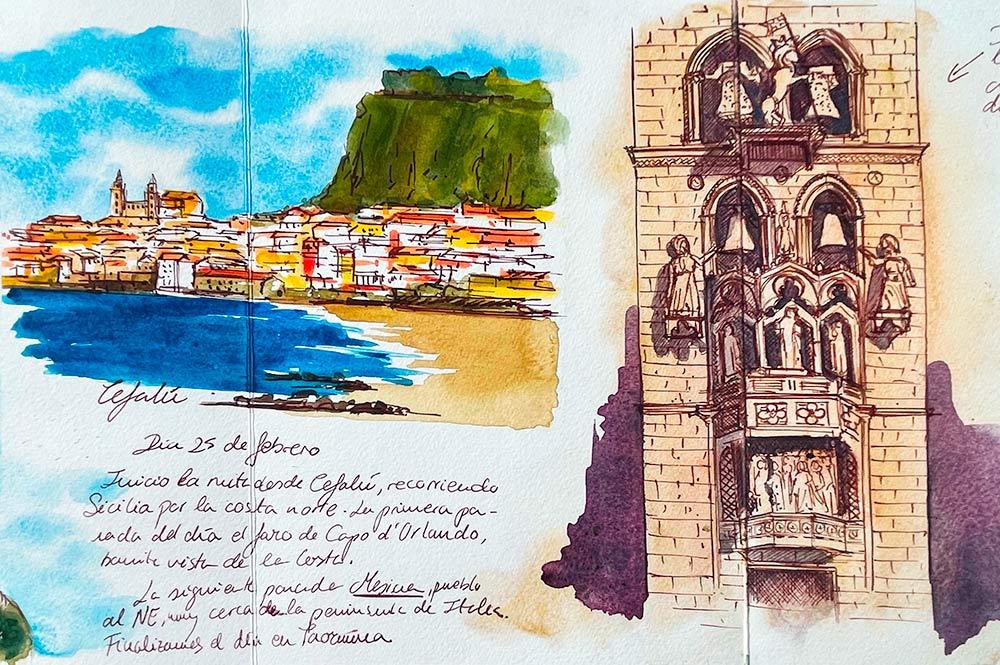 Cefalú
Día 25 de febrero
Inicio la ruta desde Cefalú, recorriendo
Sicilia por la costa norte. La primera pa-
rada del día el faro de Capo d'Orlando,
bonita vista de la costa.
La siguiente parada Mesina, pueblo
al NE, muy cerca de la península de Italia.
Finalizamos el día en Taormina